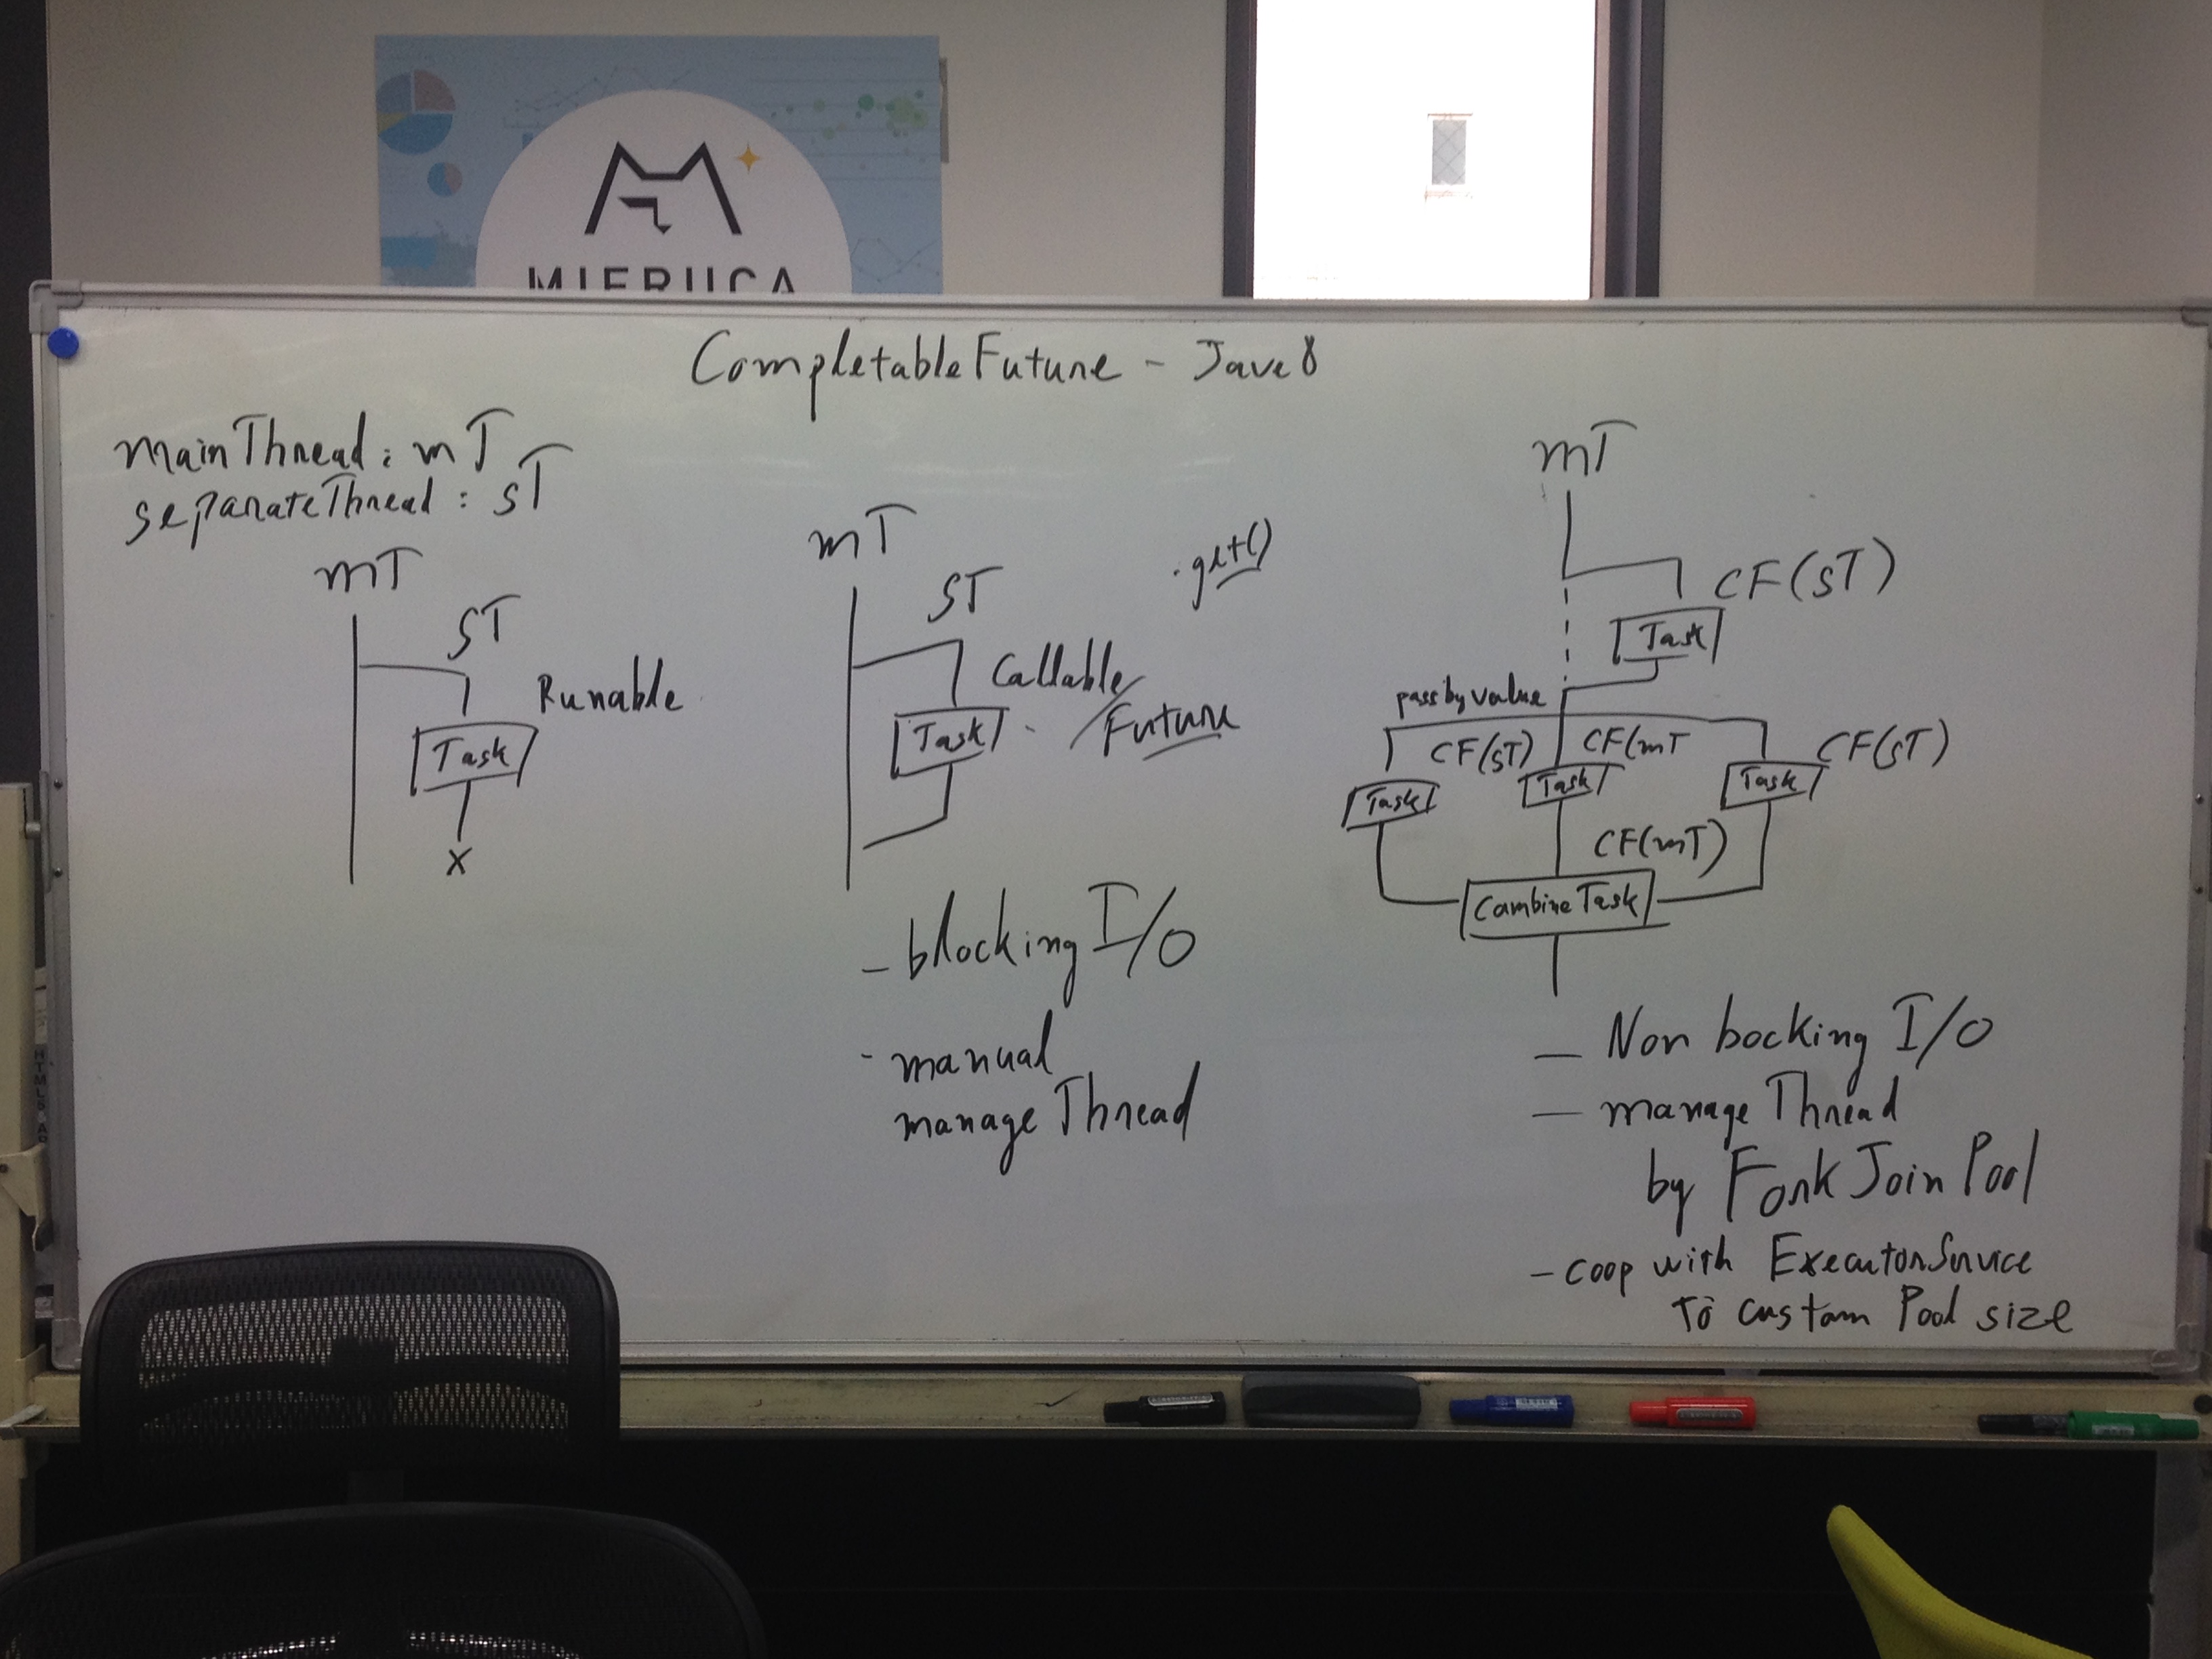 MIERUCA
CompletableFuture - Java 8
mainThread : mT
separateThread : sT
mT
sT
Runable
Task
x
mT
sT
.get()
Callable/
Future
Task
- blocking I/O
- manual
manage Thread
mT
CF(sT)
Task
pass by value
CF(sT)
CF(mT
CF(sT)
Task
Task
Task
CF(mT)
Combine Task
- Non bocking I/O
- manage Thread
by Fork Join Pool
- coop with ExecutorService
To custom Pool size